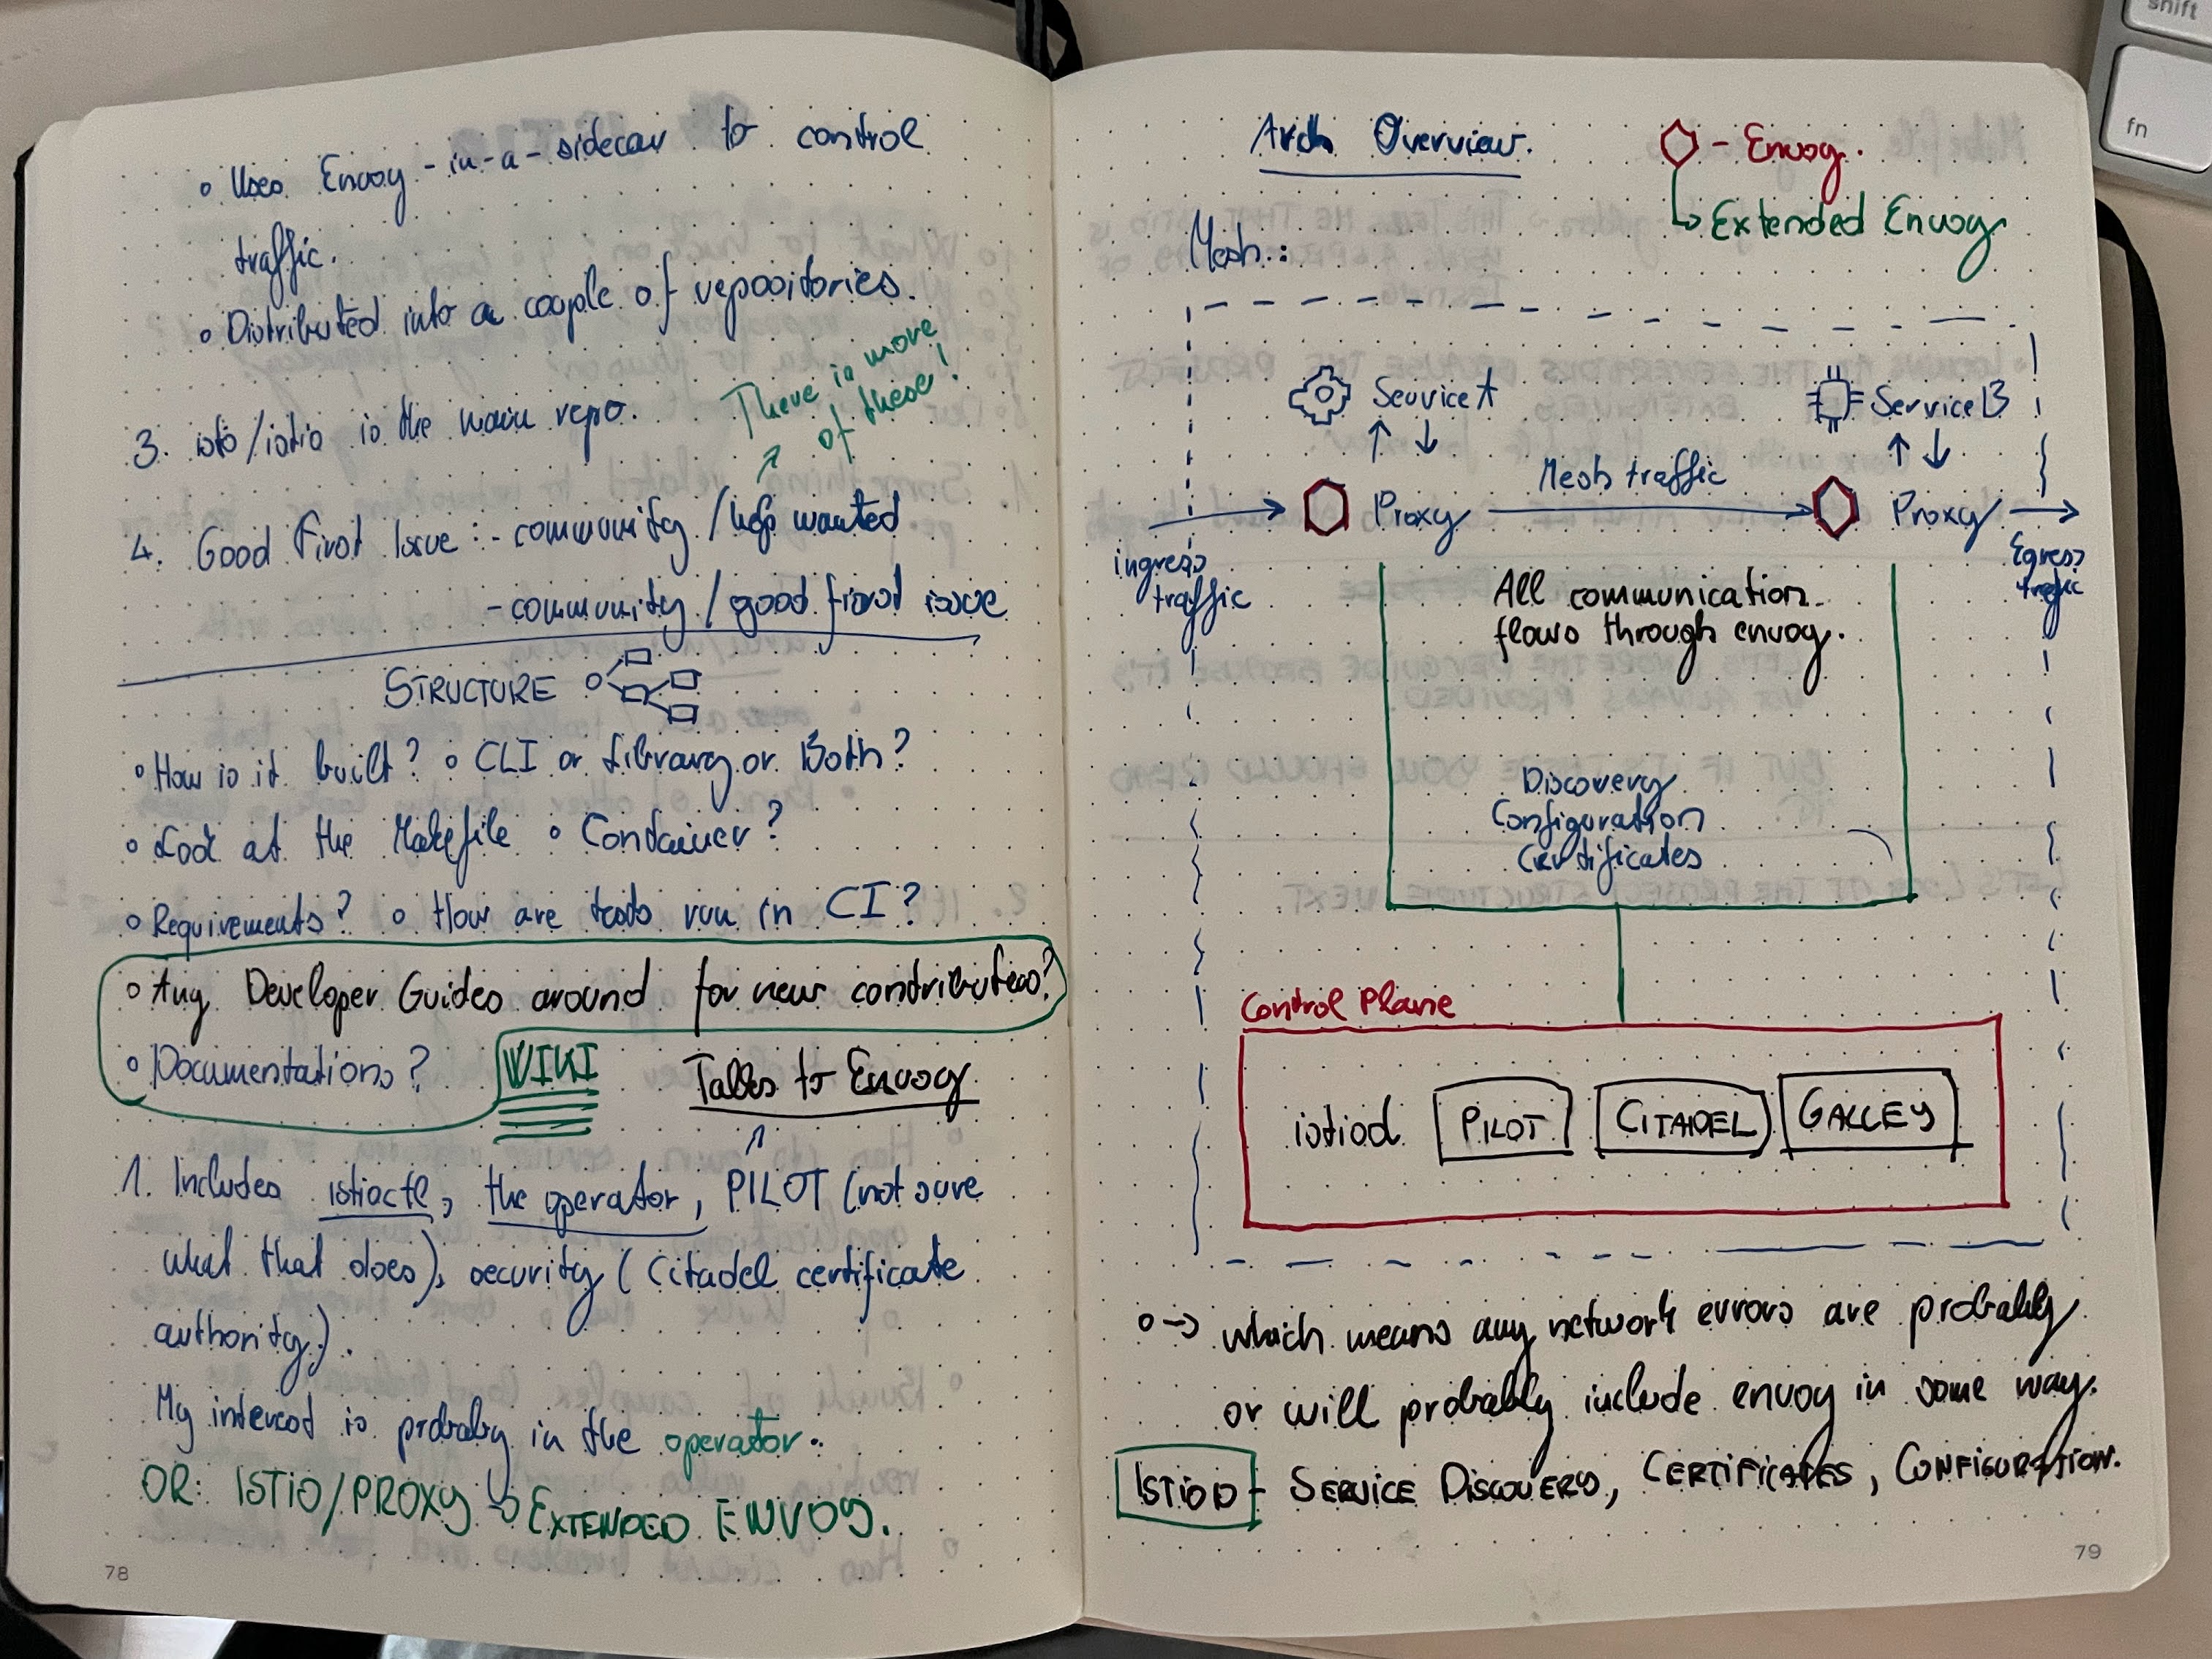 o Uses Envoy-in-a-sidecar to control
traffic.
o Distributed into a couple of repositories.
There is more
of these!
3. isto/istio is the main repo.
4. Good First Issue:- community/help wanted
- community/good first issue
STRUCTURE
o How is it built? o CLI or Library or Both?
o Look at the Makefile o Container?
o Requirements? o How are tests run in CI?
o Any Developer Guides around for new contributers?
o Documentations?
WIKI
Talks to Envoy
1. Includes istioctl, the operator, PILOT (not sure
what that does), security (Citadel certificate
authority).
My interest is probably in the operator.
OR: ISTIO/PROXY → EXTENDED ENVOY.
78
Arch Overview.
- Envoy.
Extended Envoy
Mesh:
Service A
Service B
Mesh traffic
Proxy
Proxy
ingress
traffic
Egress
trafic
All communication
flows through envoy.
Discovery
Configuration
Certificates
Control Plane
istiod PILOT CITADEL GALLEY
o → which means any network errors are probably
or will probably include envoy in some way.
ISTIOD - SERVICE DISCOVERY, CERTIFICATES, CONFIGURATION.
79
shift
fn